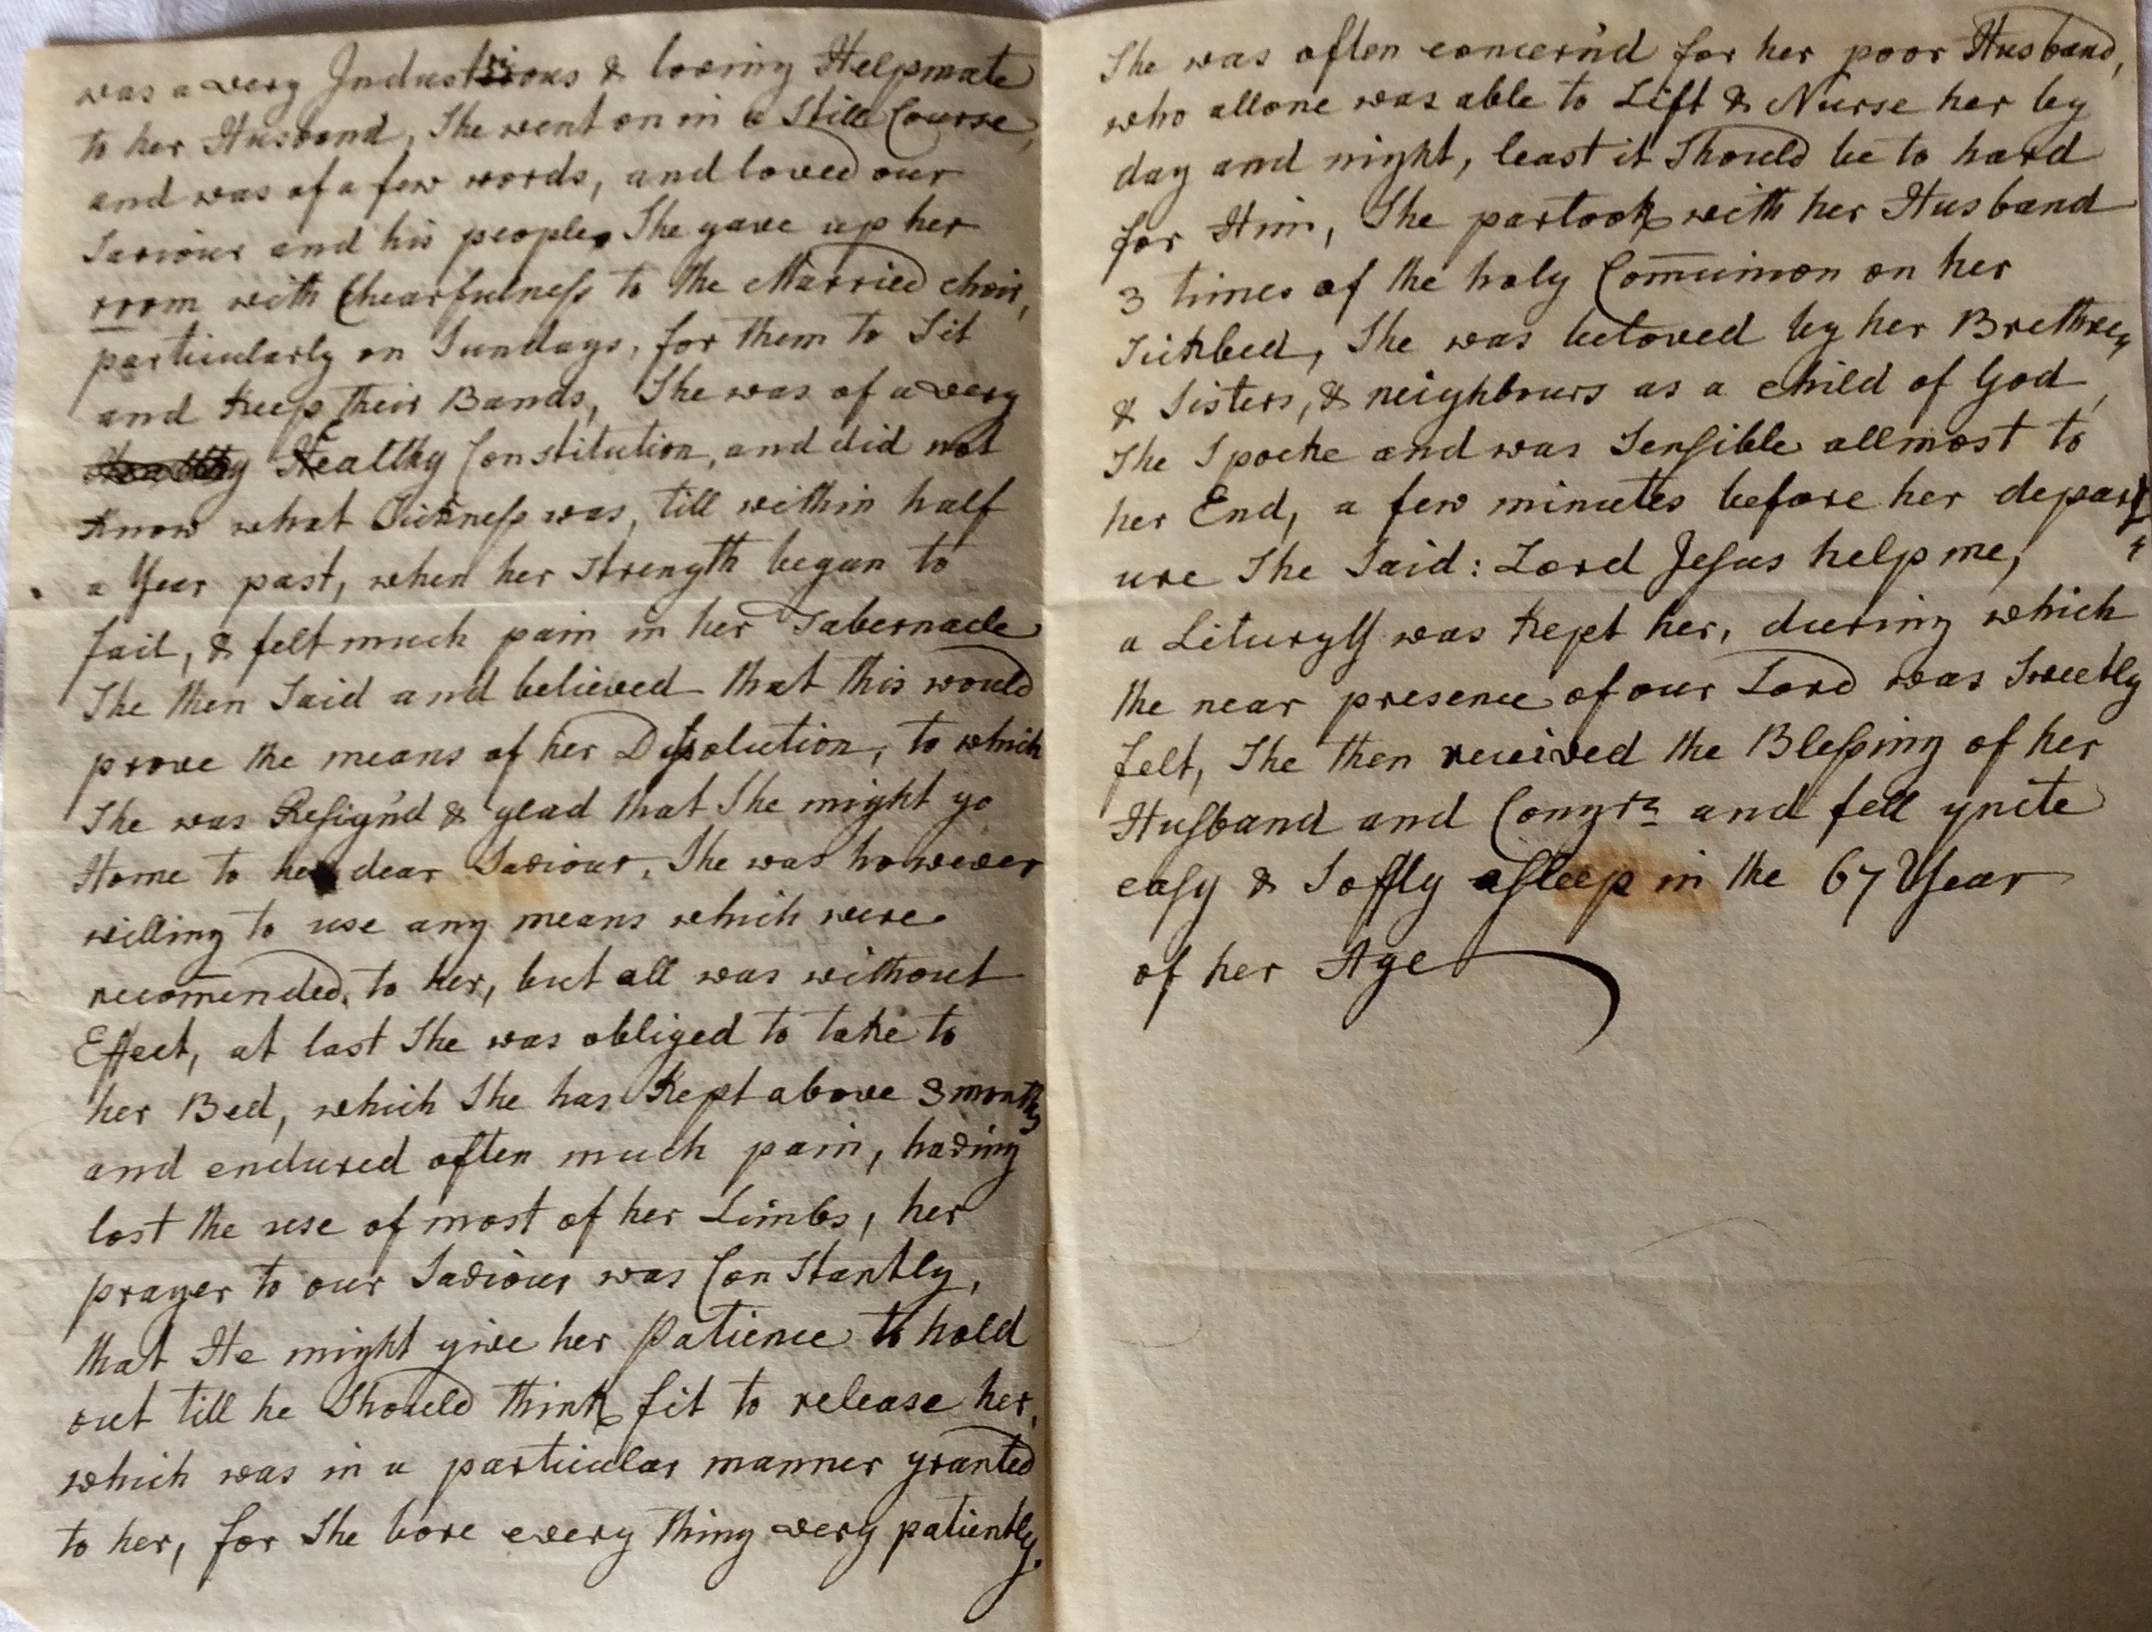 was a very Industrious & loving Helpmate
to her Husband, She went on in a Still Course,
and was of a few words, and loved our
Saviour and his people, She gave up her
room with Chearfulness to the Married choir,
particularly on Sundays, for them to Sit
and keep their Bands, She was of a very
Healthy Constitution, and did not
know what Sickness was, till within half
a Year past, when her Strength began to
fail, & felt much pain in her Tabernacle
She then Said and believed that this would
prove the means of her Dissolution, to which
She was Resign'd & glad that She might go
Home to her dear Saviour, She was however
willing to use any means which were
recom̄ended to her, but all was without
Effect, at last She was obliged to take to
her Bed, which She has kept above 3 months
and endured often much pain, having
lost the use of most of her Limbs, her
prayer to our Saviour was Constantly,
that He might give her Patience to hold
out till he Should think fit to release her,
which was in a particular manner granted
to her, for She bore every thing very patiently.
She was often concern'd for her poor Husband,
who allone was able to Lift & Nurse her by
day and night, least it Should be to hard
for Him, She partook with her Husband
3 times of the holy Com̄union on her
Sickbed, She was beloved by her Brethren
& Sisters, & neighbours as a child of God,
She Spocke and was Sensible allmost to
her End, a few minutes before her depart
ure She Said: Lord Jesus help me,
a Liturgy was kept her, during which
the near presence of our Lord was Sweetly
felt, She then received the Blessing of her
Husband and Congrn and fell quite
easy & Softly asleep in the 67 Year
of her Age